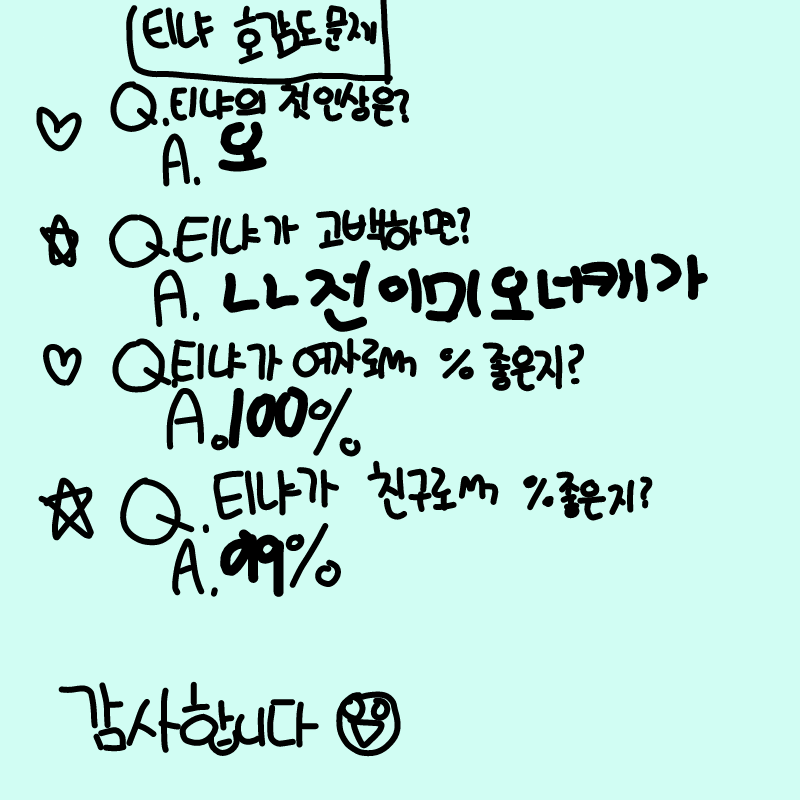 티냐 호감도 문제
Q.티냐의 첫인상은?
A. 오
Q.티냐가 고백하면?
A. ㄴㄴ전이미오너캐가
Q.티냐가 여자로서 %좋은지?
A.100%
Q.티냐가 친구로서 %좋은지?
A.99%
감사합니다